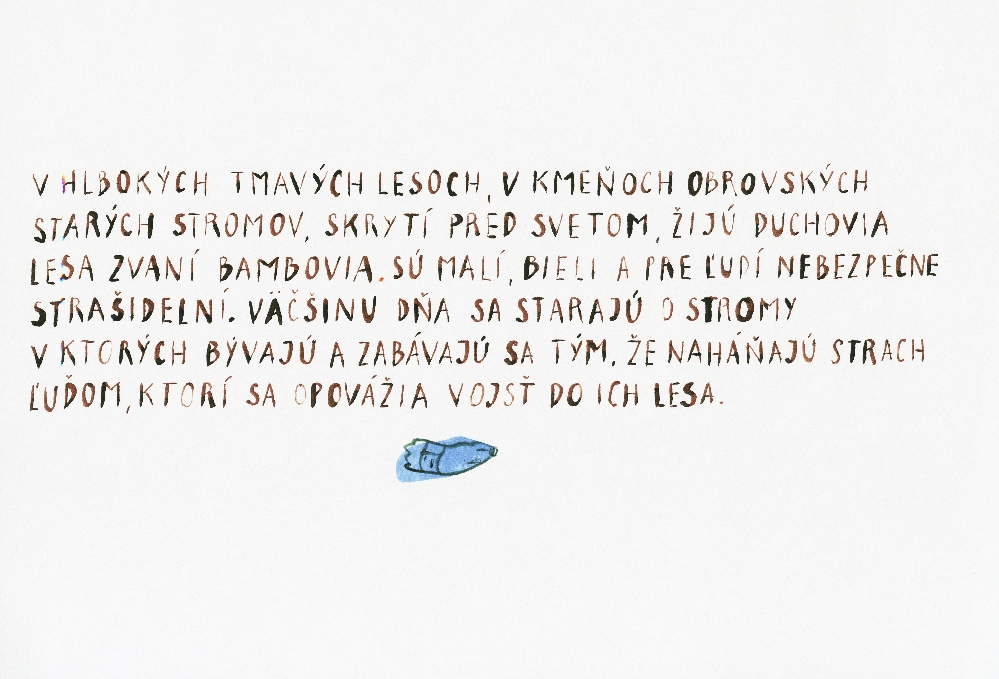 V HLBOKÝCH TMAVÝCH LESOCH, V KMEŇOCH OBROVSKÝCH
STARÝCH STROMOV, SKRYTÍ PRED SVETOM, ŽIJÚ DUCHOVIA
LESA ZVANÍ BAMBOVIA. SÚ MALÍ, BIELI A PRE ĽUDÍ NEBEZPEČNE
STRAŠIDELNÍ. VÄČŠINU DŇA SA STARAJÚ O STROMY
V KTORÝCH BÝVAJÚ A ZABÁVAJÚ SA TÝM, ŽE NAHÁŇAJÚ STRACH
ĽUĎOM, KTORÍ SA OPOVÁŽIA VOJSŤ DO ICH LESA.